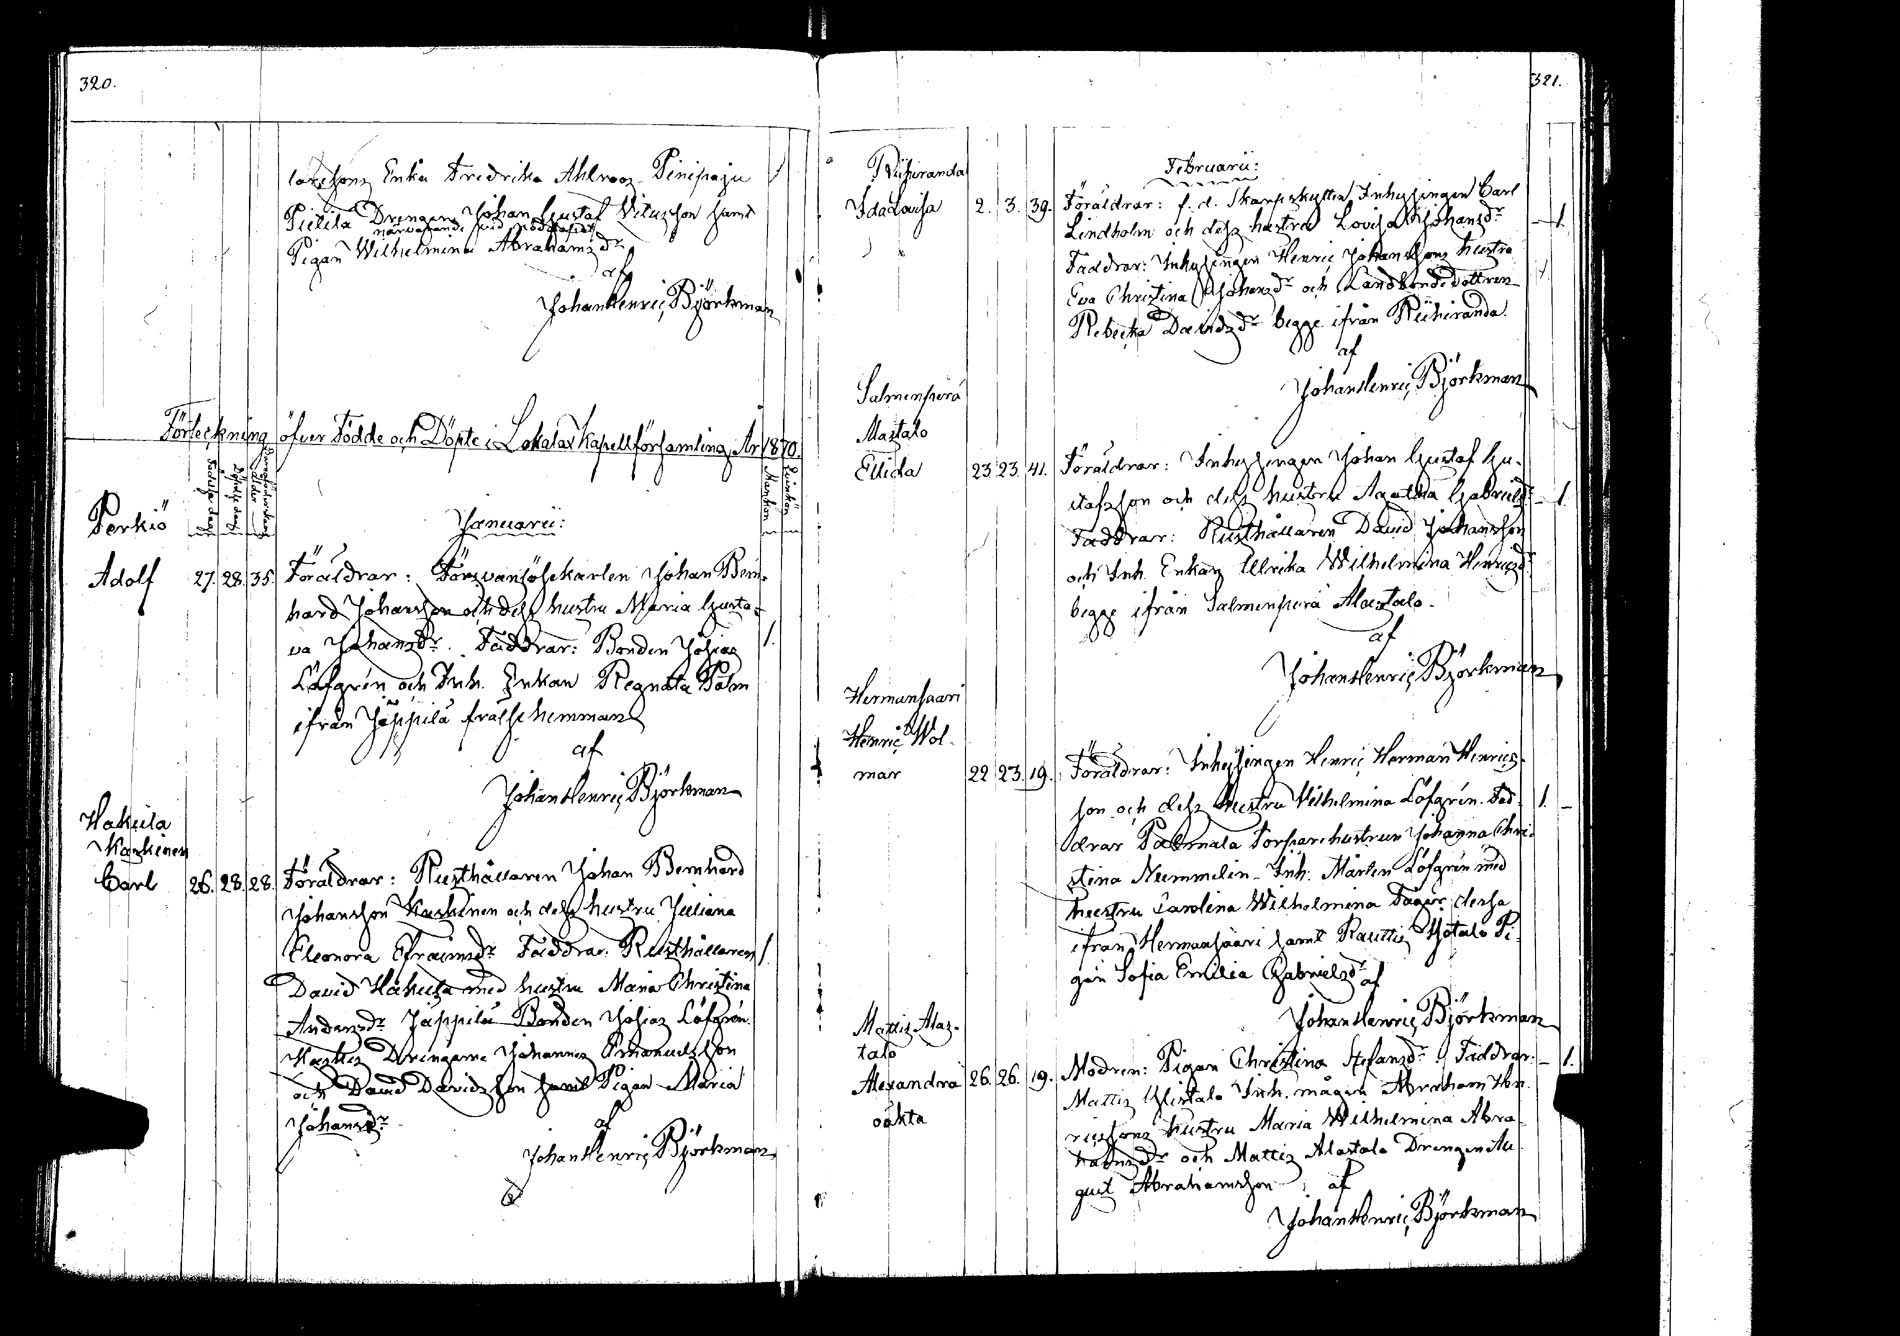 320.
larssons Enka Fredrika Ahlroos Pinipaju
Pietilä Drengen Johan Gustaf Vitusson samt
närvarande vid nöddopet
Pigan Wilhelmina Abrahamsdr
af
Johan Henric Björkman
Förteckning öfver Födde och Döpte i Lokalax Kapellförsamling År 1870.
Födelse dag
Döpelse dag
Barnaföderskans ålder
Mankön
Qvinkön
Januarii:
Perkiö
Adolf 27. 28. 35. Föräldrar: Försvarslösekarlen Johan Bern-
hard Johansson och dess hustru Maria Gusta-
va Johansdr. Faddrar: Bonden Josias 1.
Löfgrén och Inh. Enkan Regnata Palm
ifrån Jäppilä frälsehemman
af
Johan Henric Björkman
Hakula
Kaskinen
Carl 26. 28. 28. Föräldrar: Rusthållaren Johan Bernhard
Johansson Kaskinen och dess hustru Juliana
Eleonora Efraimsdr Faddrar: Rusthållaren 1.
David Hakula med hustru Maria Christina
Andersdr Jäppilä Bonden Josias Löfgrén.
Drengarne Johannes Emanuelsson
och David Davidsson samt Pigan Maria
Johansdr
af
Johan Henric Björkman
321.
Februarii:
Riihiranda
Ida Lovisa 2. 3. 39. Föräldrar: f. d. Skarpskytten Inhysingen Carl
Lindholm och dess hustru Lovisa Johansdr – 1.
Faddrar: Inhysingen Henric Johanssons hustru
Eva Christina Johansdr och Landbondedottren
Rebecka Davidsdr begge ifrån Riihiranda.
af
Johan Henric Björkman
Salmenperä
Alastalo
Elida 23. 23. 41. Föräldrar: Inhysingen Johan Gustaf Gu-
stafsson och dess hustru Agatha Gabrielsdr – 1.
Faddrar: Rusthållaren David Johansson
och Inh. Enkan Ulrika Wilhelmina Henricsdr
begge ifrån Salmenperä Alastalo.
af
Johan Henric Björkman
Hermansaari
Henric Wol-
mar 22. 23. 19. Föräldrar: Inhysingen Henric Herman Henrics-
son och dess hustru Vilhelmina Löfgrén. Fad- 1. –
drar Palmala Torparehustrun Johanna Chri-
stina Nummelin. Inh. Mårten Löfgrén med
hustru Carolina Wilhelmina Fager dessa
ifrån Hermansaari samt Rauttis Ylistalo Pi-
gan Sofia Emilia Gabrielsdr af
Johan Henric Björkman
Mattis Alas-
talo
Alexandra 26. 26. 19. Modren: Pigan Christina Stefansdr Faddrar: – 1.
oäkta
Mattis Ylistalo Inh. mågen Abraham Hen-
ricssons hustru Maria Wilhelmina Abra-
hamsdr och Mattis Alastalo Drengen Au-
gust Abrahamsson af
Johan Henric Björkman